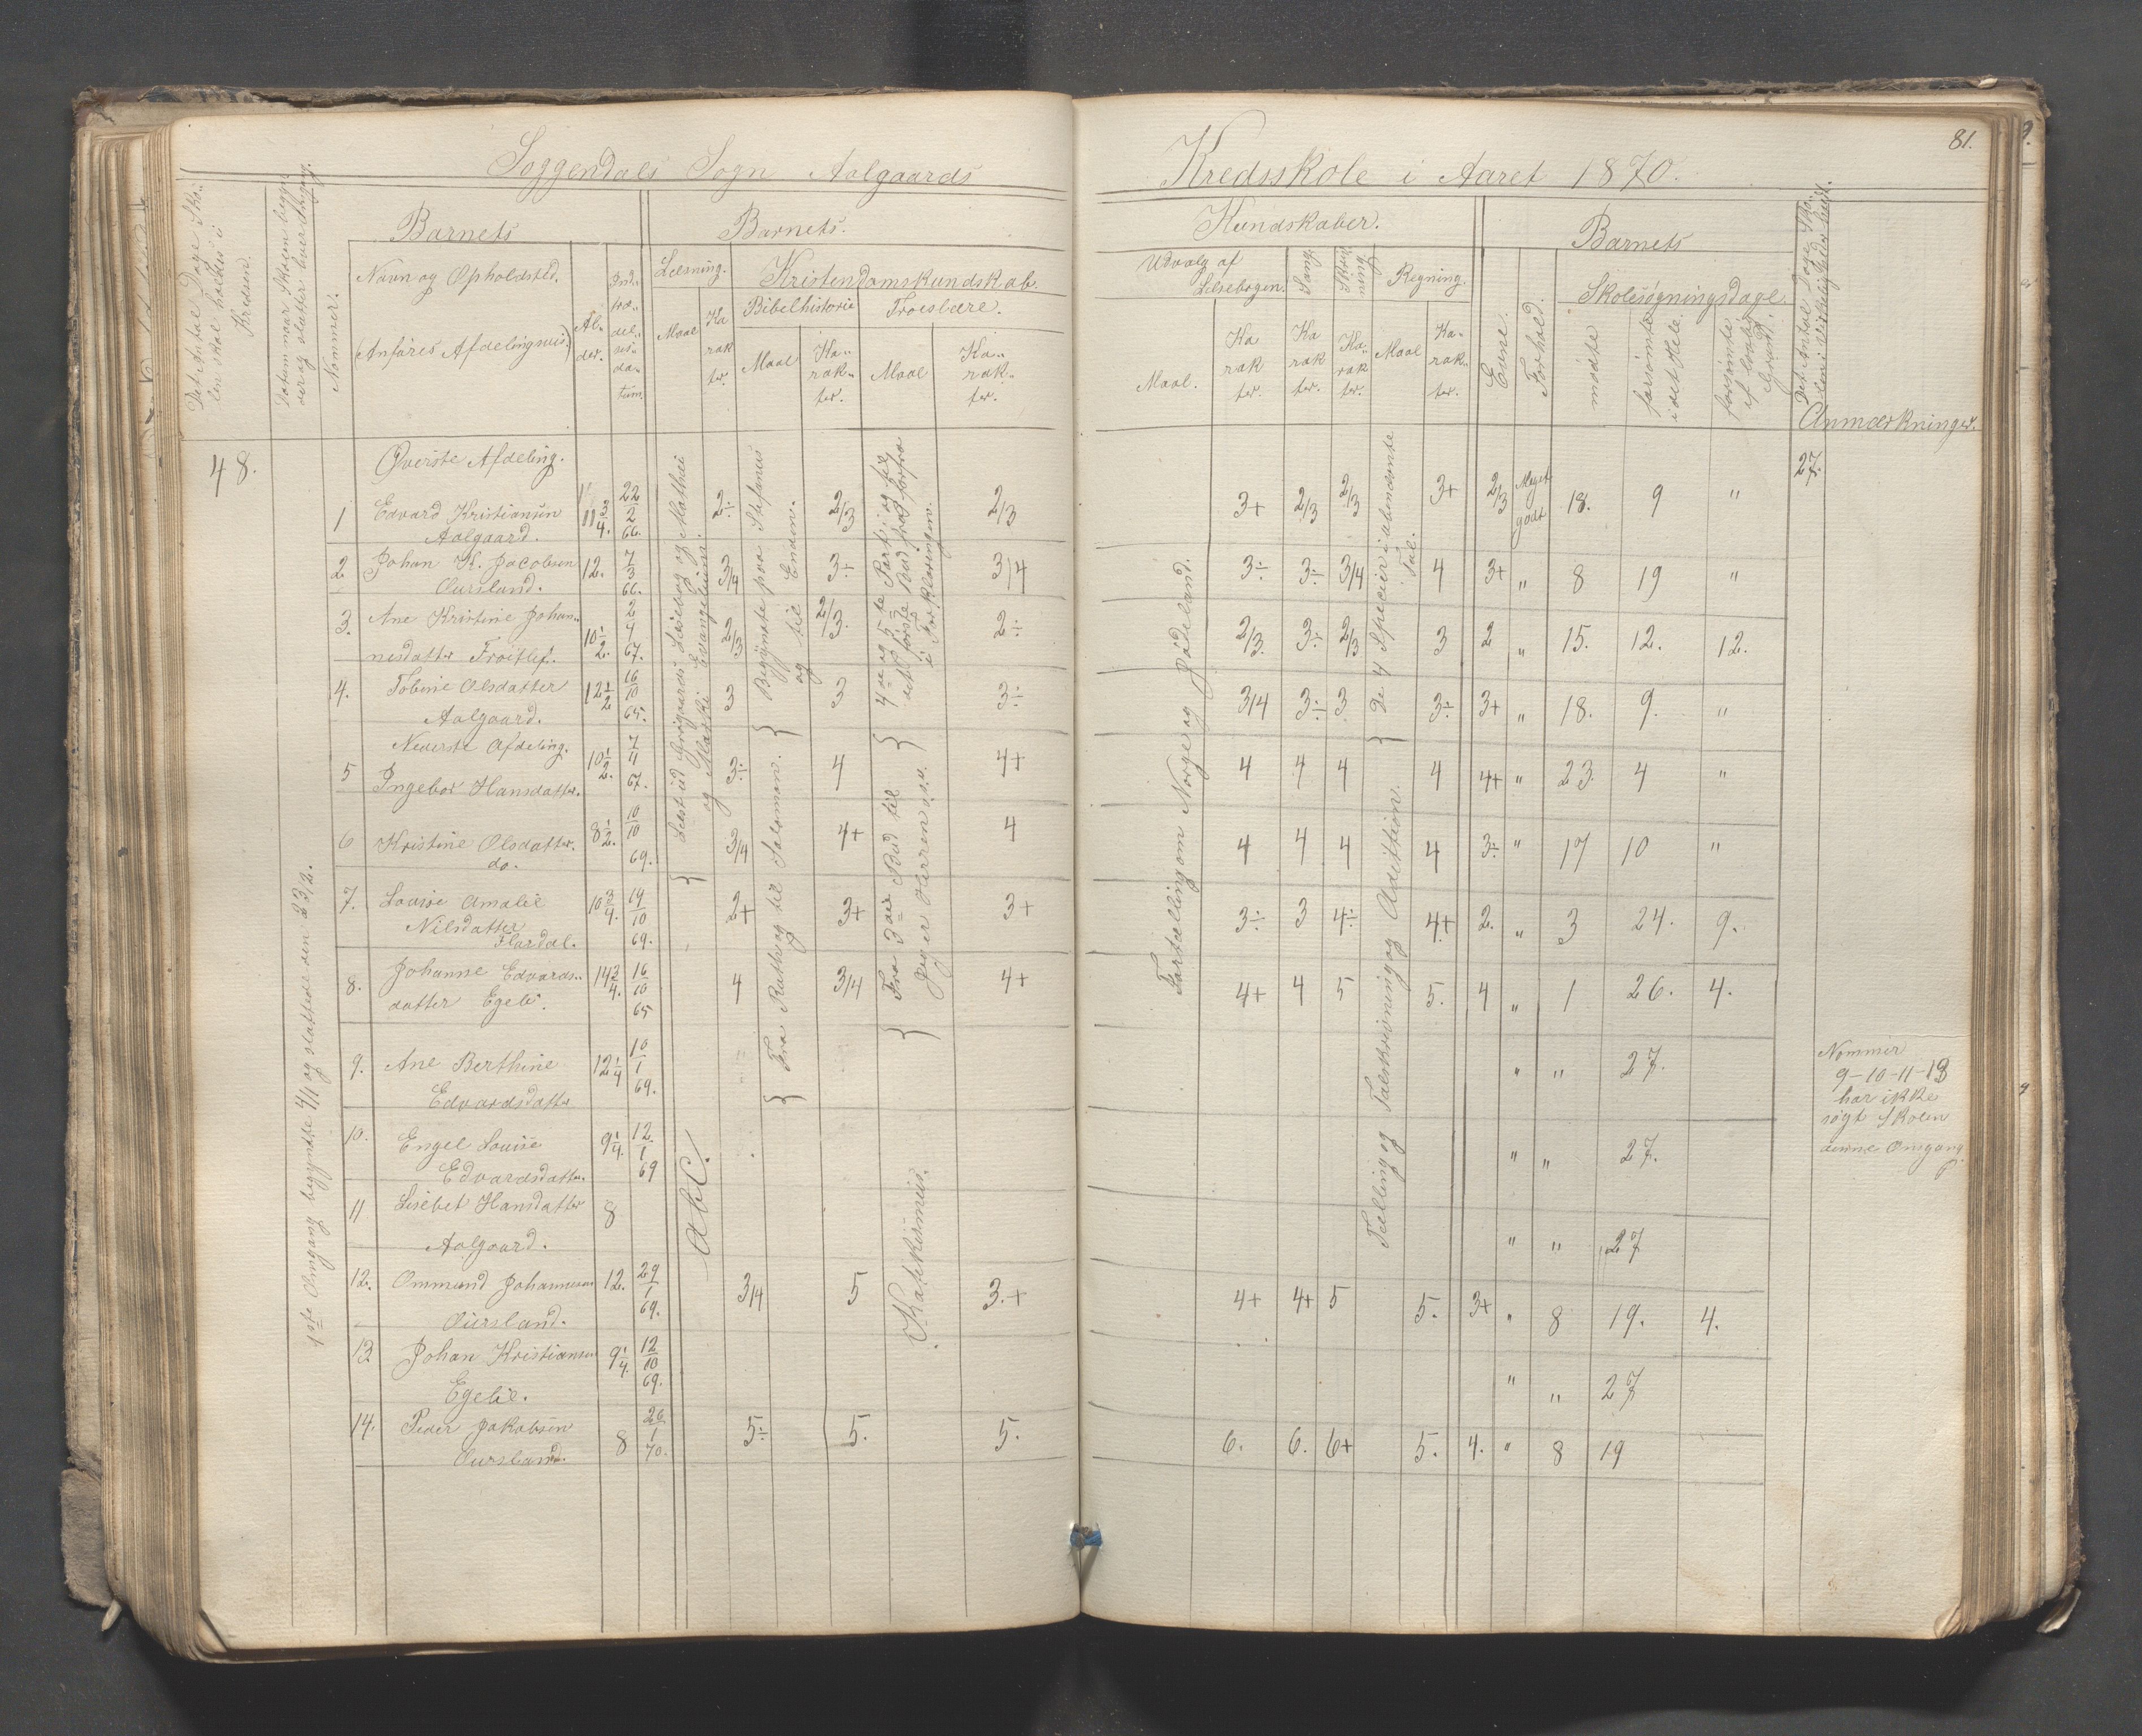 Soggendals Sogn Aalgaards Kredsskole i Aaret 1870.
81.
Det Antal Dage Sko-
len skal holdes i
Kredsen.
Datum naar Skolen begyn-
der og slutter hver Omgang.
Nommer.
Barnets
Navn og Opholdsted.
(Anføres Afdelingsvis.)
Al-
der.
Ind-
træ-
del-
ses-
da-
tum.
Barnets.
Læsning.
Maal
Ka
rak
ter.
Kristendomskundskab.
Bibelhistorie
Maal
Ka-
rak-
ter.
Troeslære.
Maal
Ka-
rak-
ter.
Kundskaber.
Udvalg af
Læsebogen.
Maal.
Ka
rak
ter.
Sang.
Ka
rak
ter.
Skriv-
ning.
Ka-
rak
ter.
Regning.
Maal
Ka-
rak-
ter.
Barnets
Evne.
Forhold.
Skolesøgningsdage.
mødte
forsømte
i det Hele.
forsømte
af lovlig
Grund.
Det Antal Dage Sko-
len i Virkeligheden holdt.
Anmærkninger.
48.
27.
1ste Omgang begyndte 4/1 og sluttede den 23/2.
Øverste Afdeling.
1 Edvard Kristiansen 11 3/4. 22/2 66. 2÷ 2/3 2/3 3+ 2/3 2/3 3+ 2/3 Meget godt 18. 9 "
Aalgaard.
2 Johan K. Jacobsen 12. 7/3 66. 3/4 3+ 3/4 3÷ 3÷ 3/4 4 3+ " 8 19 "
Oursland.
3. Ane Kristine Johan- 10 1/2. 2/4 67. 2/3 2/3. 2÷ 2/3. 3÷ 2/3 3 2 " 15. 12. 12.
nesdatter
4. Tobine Olsdatter 12 1/2 16/10 65. 3 3 3÷ 3/4 3÷ 3 3÷ 3+ " 18. 9. "
Aalgaard.
Nederste Afdeling.
5 Ingebor Hansdatter. 10 1/2. 7/4 67. 3÷ 4 4+ 4 4 4 4 4+ " 23. 4 "
6 Kristine Olsdatter. 8 1/2. 10/10 69. 3/4 4+ 4 4 4 4 4 3÷ " 17 10 "
do.
7. Louise Amalie 10 3/4. 19/10 69. 2+ 3+ 3+ 3÷ 3 4÷ 4+ 2. " 3 24. 9.
Nilsdatter
8. Johanne Edvards- 14 3/4. 16/10 65 4 3/4 4+ 4+ 4 5 5. 4 " 1 26. 4.
datter Egeli.
9. Ane Berthine 12 1/4 10/1 69. " " 27.
Edvardsdatter
10. Engel Louise 9 1/4. 12/1 69 " " 27.
Edvardsdatter.
11 Lisebet Hansdatter 8 " " 27
Aalgaard.
12. Ommund Johannesen 12. 29/1 69. 3/4 5 3.+ 4+ 4+ 5 5. 3+ " 8 19. 4.
Oursland.
13 Johan Kristiansen 9 1/4. 12/10 69. " " 27
Egelie.
14. Peder Jakobsen 8 26/1 70. 5÷ 5. 5. 6. 6. 6+ 5. 4. " 8 19
Oursland.
Læst ud Grøgaards Læsebog og Mathæi
og Marki Evangelium.
AbC.
Begyndte paa Stefanus
og til Enden.
Fra Ruth og til Salomon.
4de og 5te Part: og til
det første Bud fra forfra
i Forklaringen.
Fra 3die Bud til
Jeg er Herren o.s.v.
Katekismus.
Fortælling om Norge og Jødeland.
De 4 Specier i ubenævnte
Tal.
Tælling og Talskrivning og Addition.
Nommer
9-10-11-13
har ikke
søgt Skolen
denne Omgang.